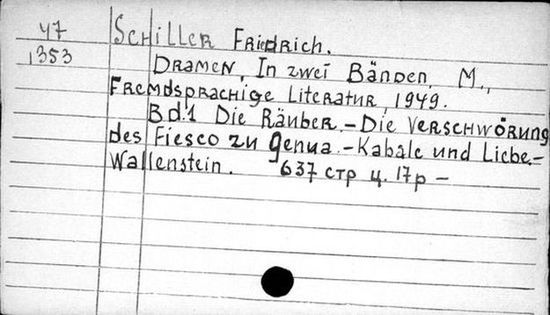 47
1353
Schiller Friedrich.
Dramen, In zwei Bänden, M.,
Fremdsprachige Literatur, 1949.
Bd.1 Die Räuber.–Die Verschwörung
des Fiesco zu Genua.–Kabale und Liebe.–
Wallenstein. 637 стр ц. 17р –